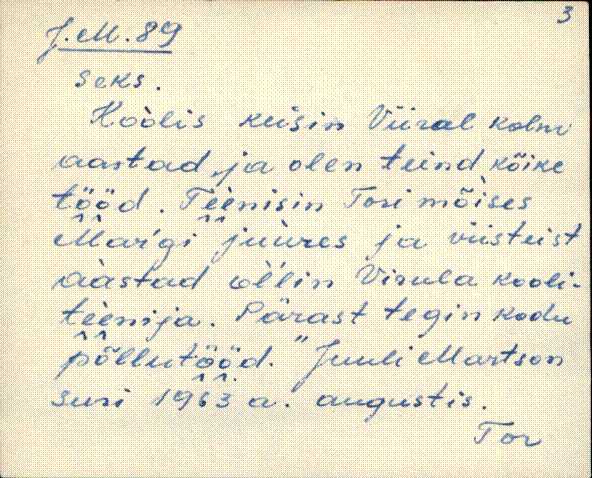 3
J.M.89
seks.
Koòlis keisin Viiral kolm
aastad, ja olen teind kõike
tööd. Teènisin Tori mõìses
Mar'gi juùres ja viisteist
aàstad ol'lin Virula kooli-
teènija. Pärast tegin kodu
põllutööd." Juuli Martson
suri 1963 a. augustis.
Tor